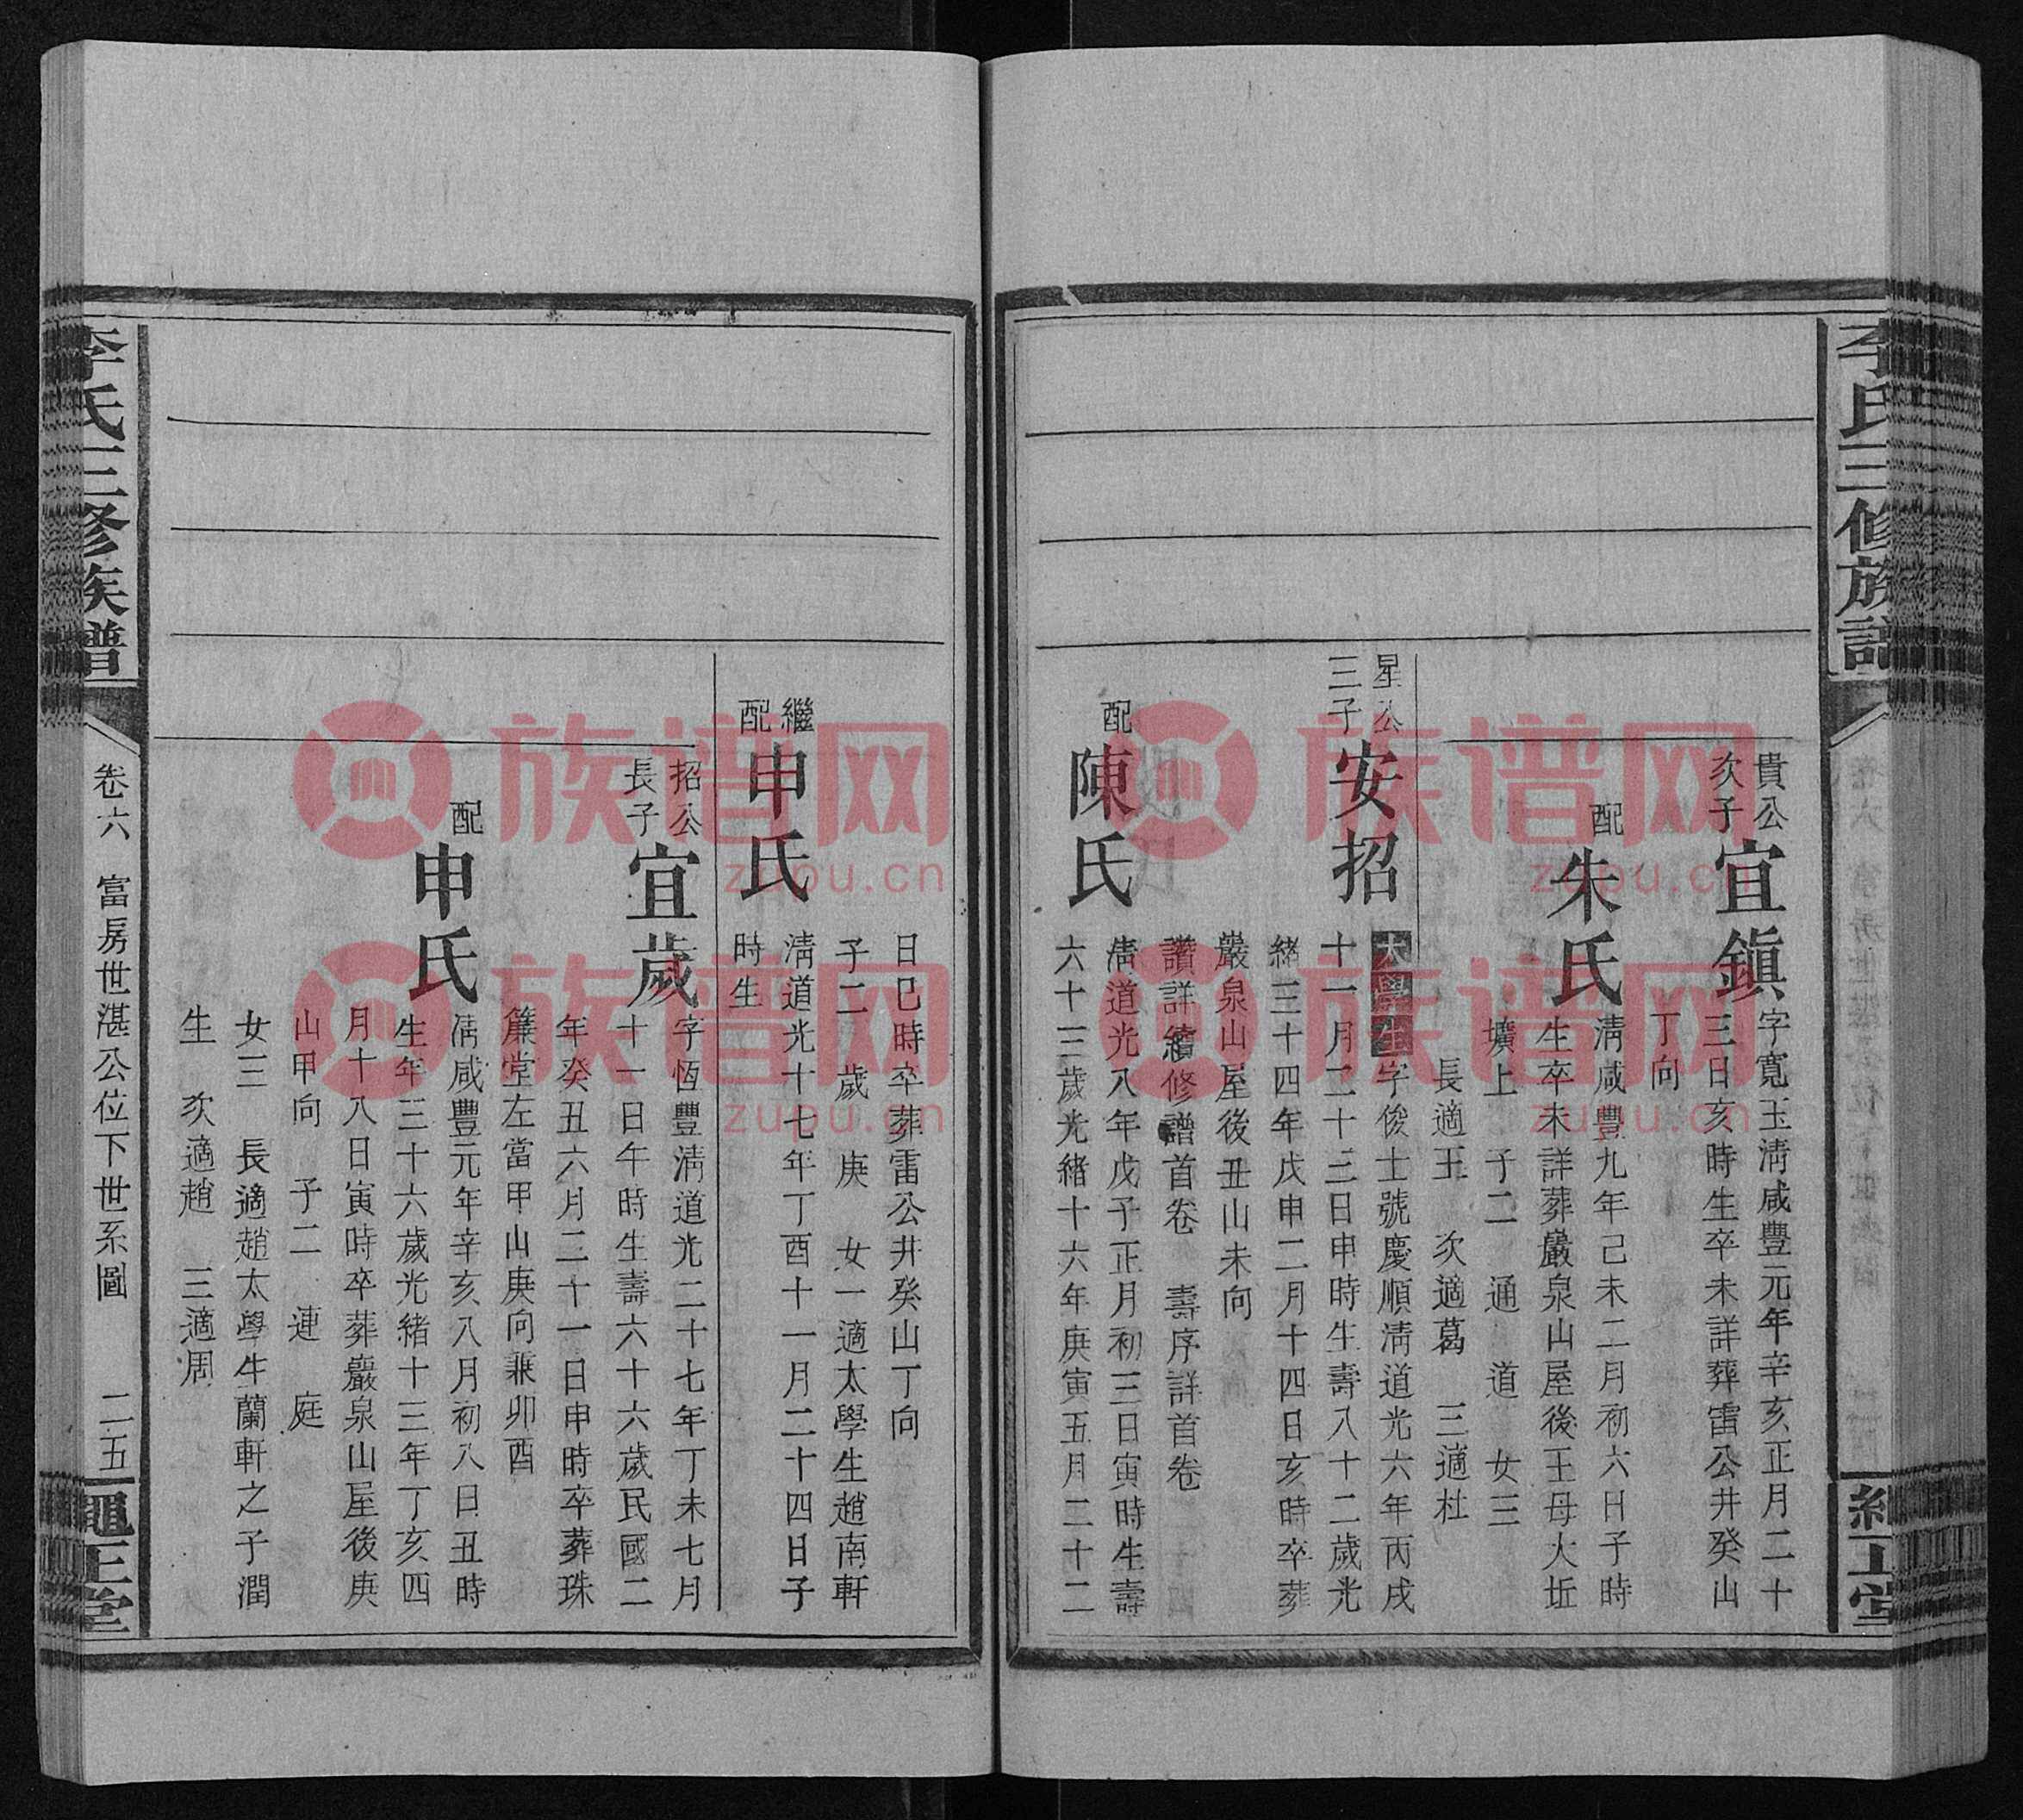 李氏三修族譜
貴公
次子
宜鎮
字寬玉淸咸豐元年辛亥正月二十
三日亥時生卒未詳葬雷公井癸山
丁向
配
朱氏
淸咸豐九年己未二月初六日子時
生卒未詳葬巖泉山屋後王母大坵
壙上 子二 通 道 女三
長適王 次適葛 三適杜
星公
三子
安招
太學生字俊士號慶順淸道光六年丙戌
十一月二十三日申時生壽八十二歲光
緒三十四年戊申二月十四日亥時卒葬
巖泉山屋後丑山未向
讚詳續修譜首卷 壽序詳首卷
配
陳氏
淸道光八年戊子正月初三日寅時生壽
六十三歲光緒十六年庚寅五月二十二
日巳時卒葬雷公井癸山丁向
子二 歲 庚 女一適太學生趙南軒
繼
配
申氏
淸道光十七年丁酉十一月二十四日子
時生
招公
長子
宜歲
字恆豐淸道光二十七年丁未七月
十一日午時生壽六十六歲民國二
年癸丑六月二十一日申時卒葬珠
簾堂左當甲山庚向兼卯酉
配
申氏
淸咸豐元年辛亥八月初八日丑時
生年三十六歲光緒十三年丁亥四
月十八日寅時卒葬巖泉山屋後庚
山甲向 子二 連 庭
女三 長適趙太學生蘭軒之子潤
生 次適趙 三適周
李氏三修族譜
卷六 富房世湛公位下世系圖 二五
繩正堂
族谱网
zupu.cn
族谱网
zupu.cn
族谱网
zupu.cn
族谱网
zupu.cn